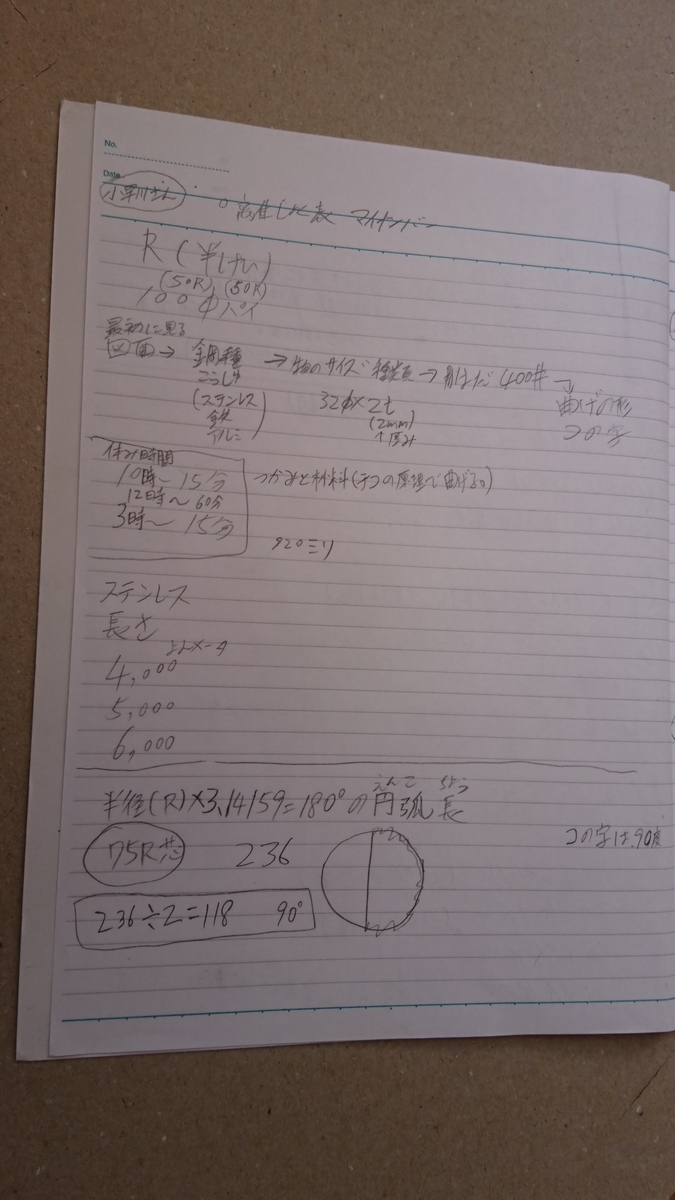 No.
Date
小早川さん
マイナンバー
R (半けい)
(50R) (50R)
100φ パイ
最初に見る
図面→ 鋼種 →物のサイズ 種類→肌はだ 400井→曲げの形
こうしゅ 32φ×2t コの字
(ステンレス (2mm)
鉄 ↑厚み
アルミ)
休み時間
10時〜15分 つかみと材料(テコの原理で曲げる。)
12時〜60分
3時〜15分
920ミリ
ステンレス
長さ
よんメータ
4,000
5,000
6,000
えんこ ちょう
半径(R)×3.14159=180°の円弧長
コの字は90度
75R芯 236
236÷2=118 90°